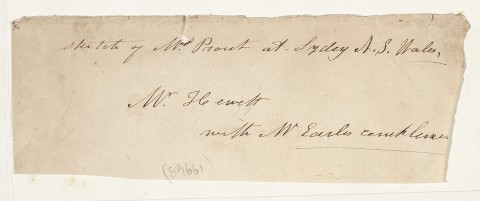 sketch of Mrs Prout at Sydey N.S. Wales,
Mr Hewett
with Mr Earles
(59661)